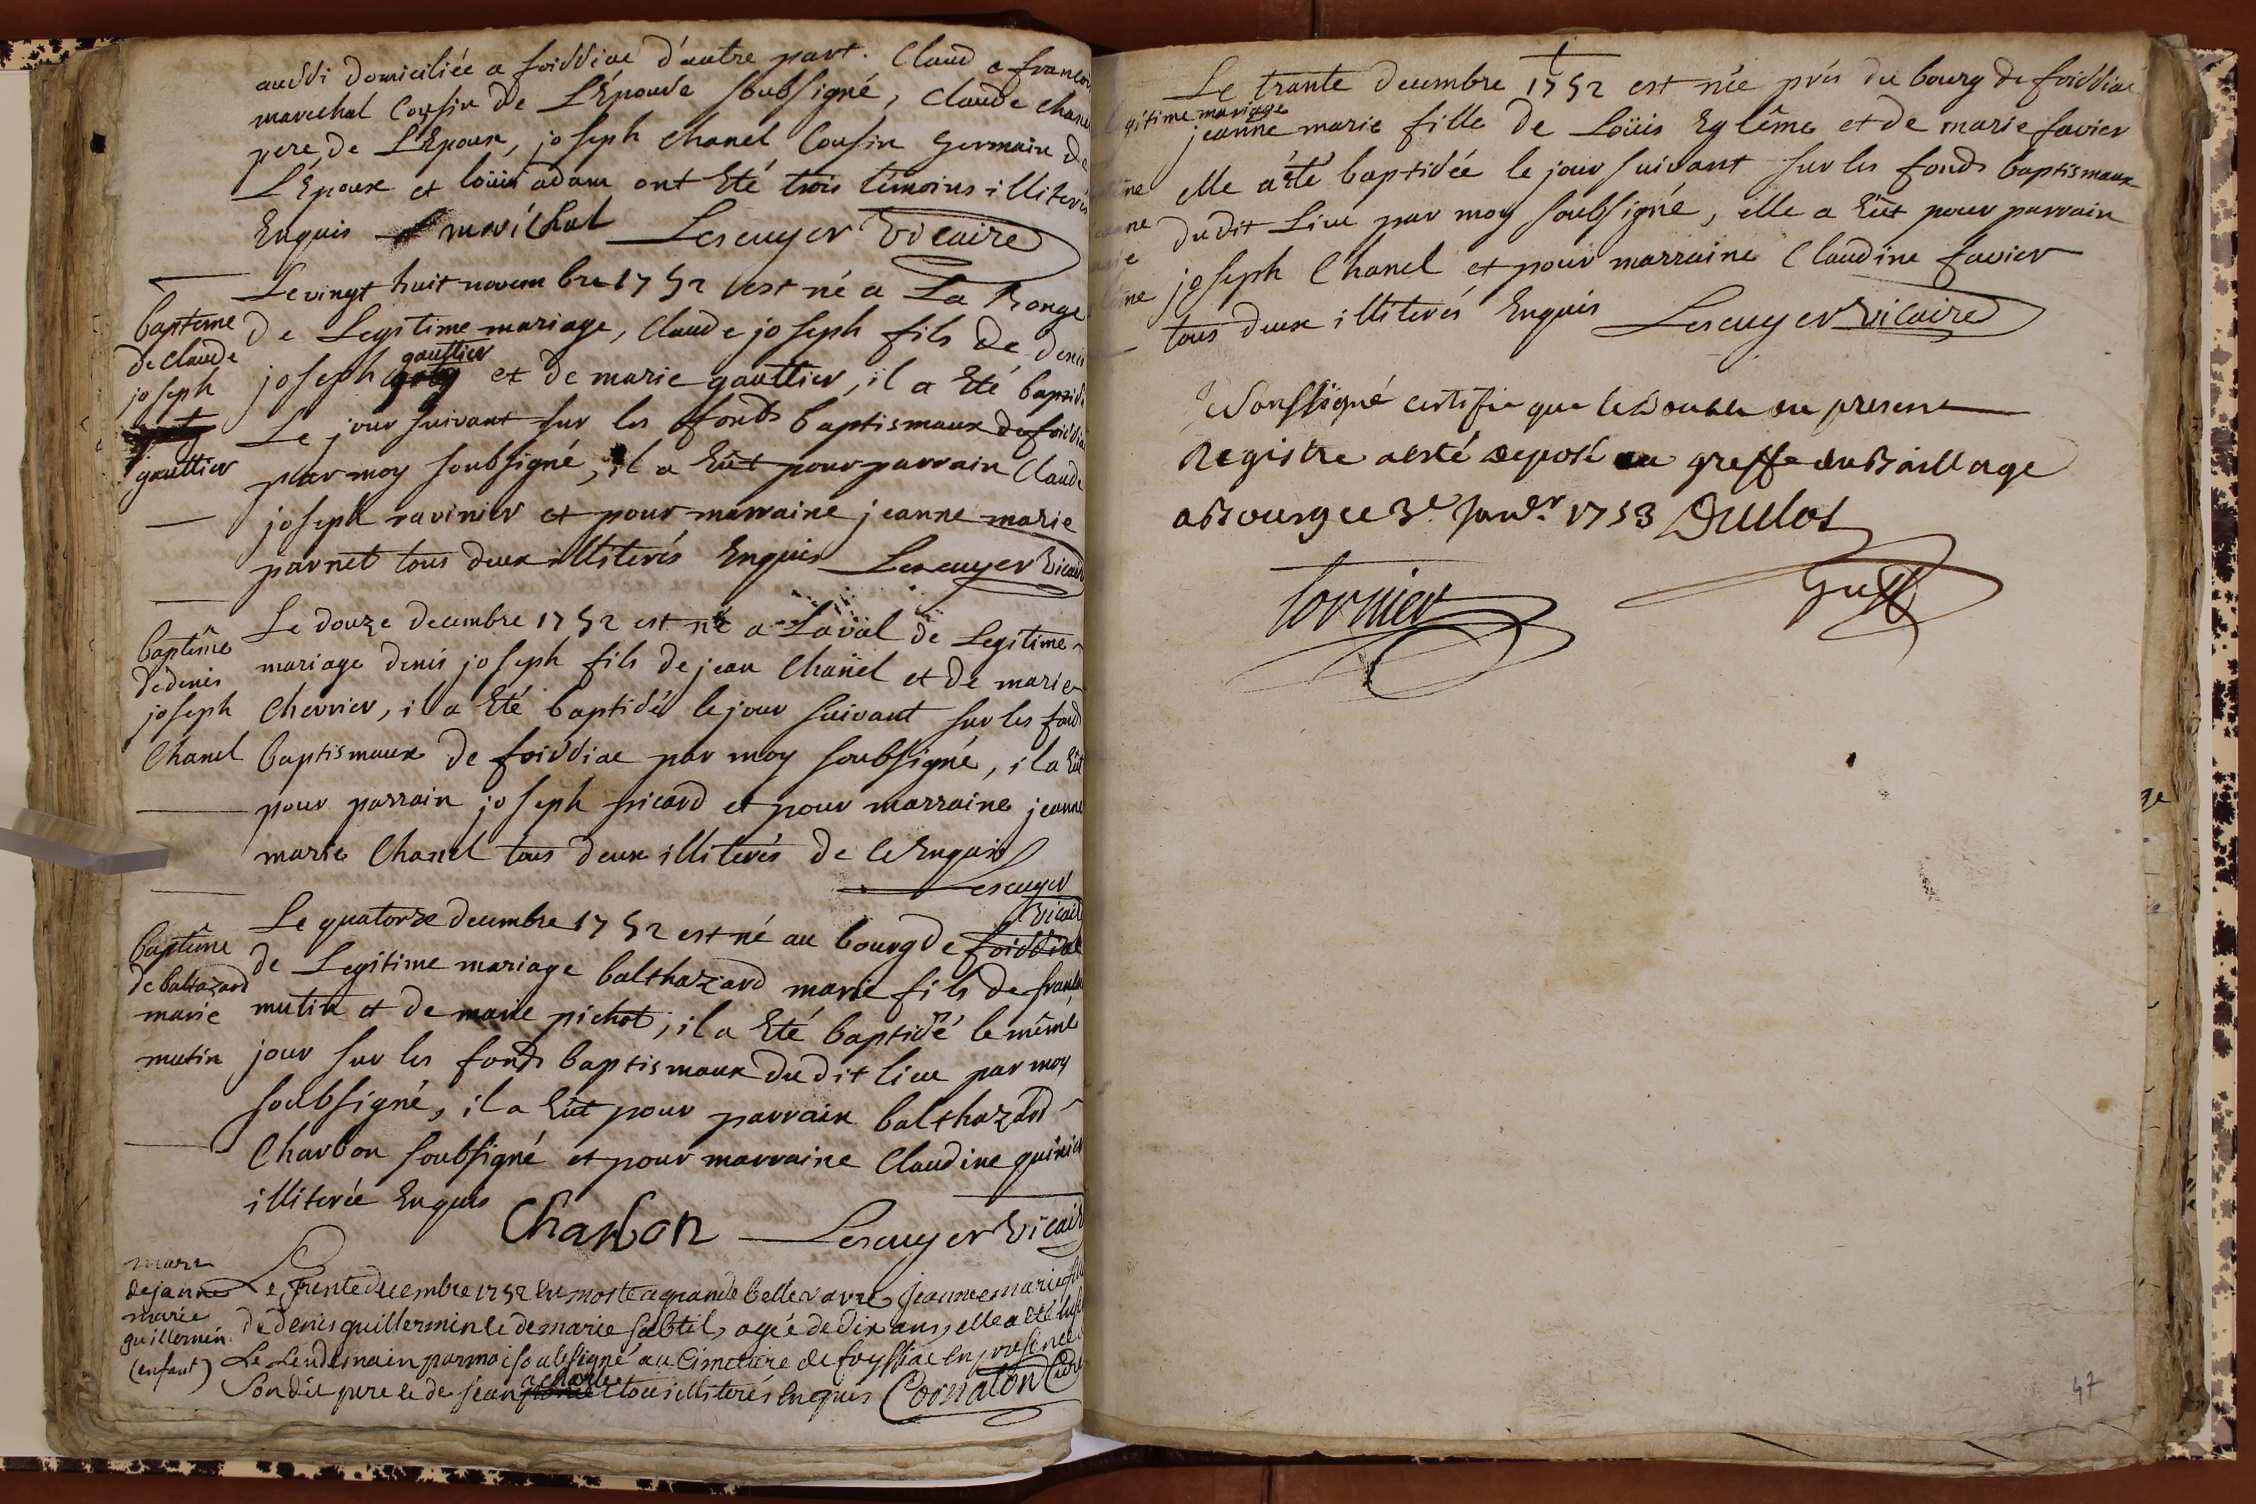 aussi domiciliée a foissiac d'autre part. Claud a françois
marechal Cousin de L'Epouse soubsigné, Claude chanel
pere de L'Epoux, joseph Chanel Cousin germain de
L'Epoux et loüis adam ont Eté trois témoins illiterés
Enquis marichal Lescuyer Vicaire
Le vingt huit novembre 1752 est né a La Ronge
de Legitime mariage, Claude joseph fils de denis
joseph gauttier et de marie gauttier, il a Eté baptisé
Le jour suivant sur les fonds baptismaux de foissiac
par moy soubsigné, il a Eût pour parrain Claude
joseph ravinier et pour marraine jeanne marie
parnet tous deux illiterés Enquis Lescuyer Vicaire
baptême
de Claude
joseph
gauttier
Le douze decembre 1752 est né a Laval de Legitime
mariage denis joseph fils de jean Chanel et de marie
Chevrier, il a Eté baptisé le jour suivant sur les fonds
baptismaux de foissiac par moy soubsigné, il a Eût
pour parrain joseph picard et pour marraine jeanne
marie Chanel tous deux illiterés de ce Enquis
Lescuyer
Vicaire
baptême
de denis
joseph
Chanel
Le quatorze decembre 1752 est né au bourg de foissiac
de Legitime mariage balthazard marie fils de françois
mutin et de marie pichot, il a Eté baptisé le même
jour sur les fonds baptismaux dudit lieu par moy
soubsigné, il a Eût pour parrain balthazard
Charbon soubsigné et pour marraine Claudine
illiterée Enquis
Charbon Lescuyer Vicaire
baptême
de baltazard
marie
mutin
Le Trente decembre 1752 Est morte a grande bellevavre jeanne marie fille
de denis guillermin et de marie subtil, agée de dix ans, elle a Eté
Le Lendemain par moi soubsigné au Cimetiere de foyssiac en présence
Son dit pere et de jean tous illiterés Enquis Cornaton Curé
mort
de janne
marie
guillermin
(enfant)
Le trante decembre 1752 est née prés du bourg de foissiac
gitime mariage
jeanne marie fille de Loüis Eglême et de marie favier
elle a été baptisée le jour suivant sur les fonds baptismaux
dudit Lieu par moy soubsigné, elle a Eût pour parrain
joseph Chanel et pour marraine Claudine favier
tous deux illiterés Enquis Lescuyer vicaire
Je Soussigné certifie que le Double du present
Registre a esté deposé au greffe du Baillage
a Bourg ce 3e. Janvr. 1753 Duclos
Tornier Greff
47